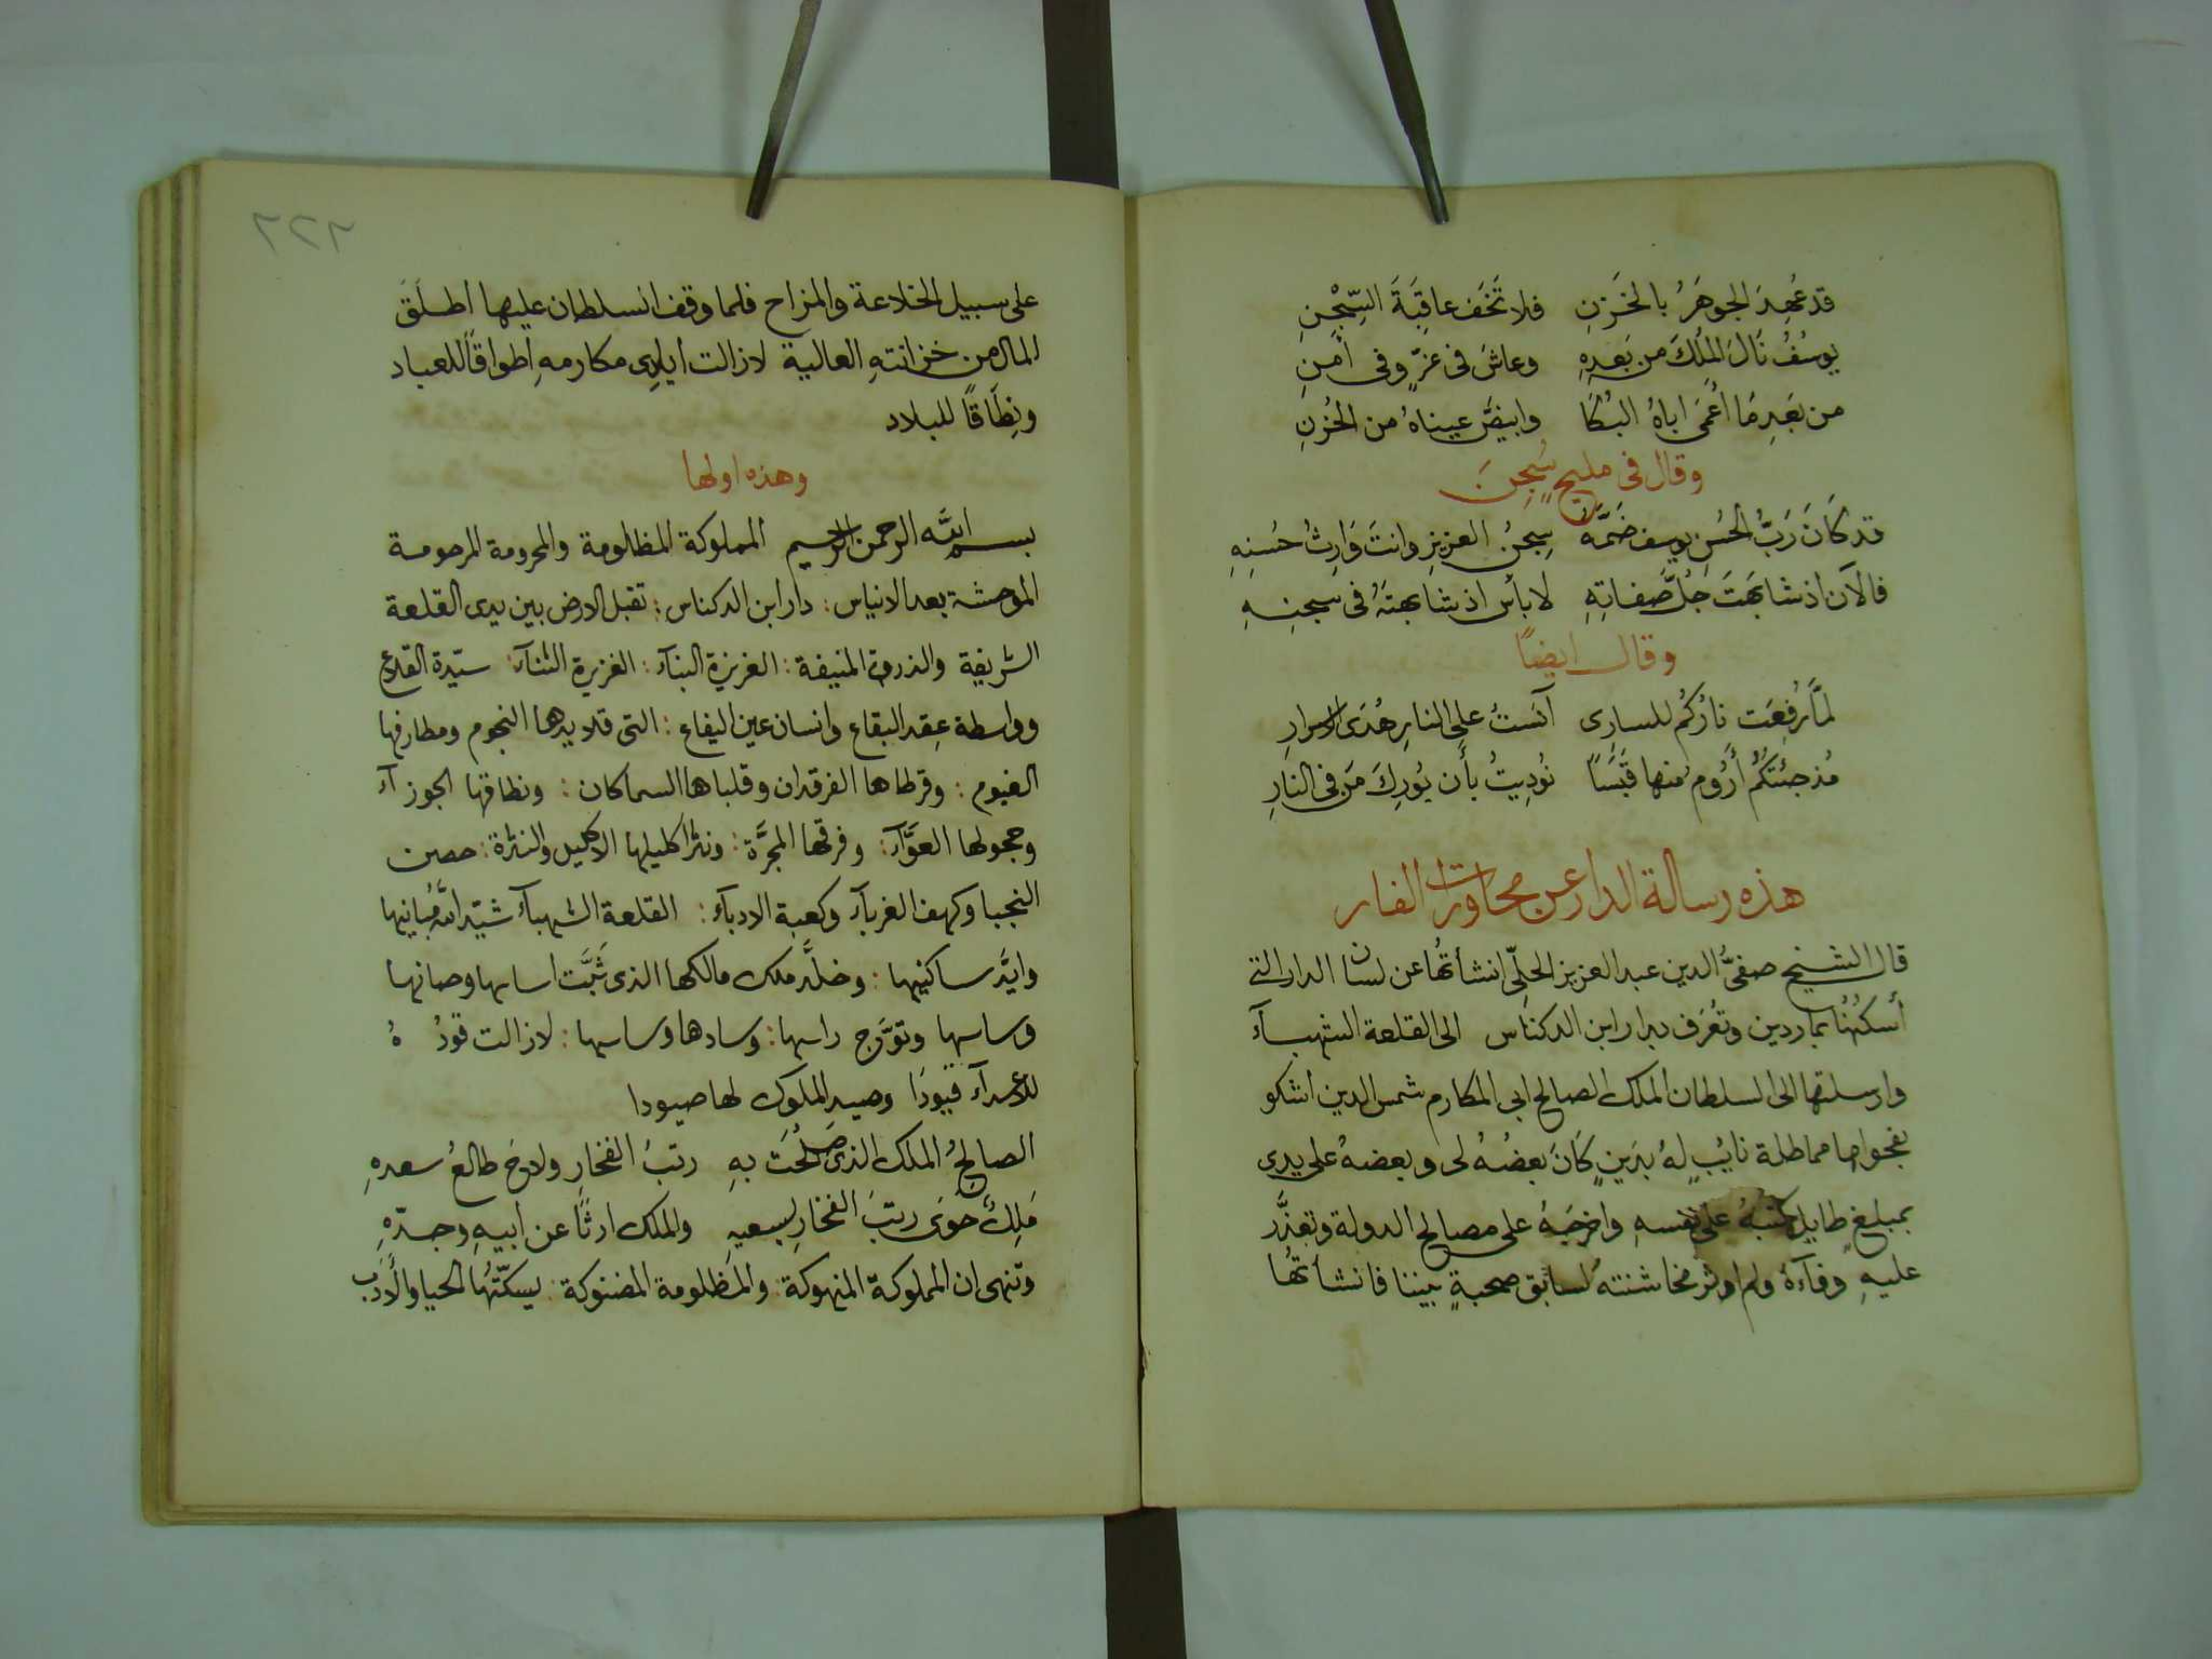 قد عُهِدَ الجوهَرُ بالخَزنِ فلا تَخَف عاقِبَةَ السِّجْنِ
يوسُفُ نَالَ المُلكَ من بَعدِهِ وعاشَ فى عزٍّ وفى أمنِ
من بَعدِ مَا أَعْمَى اباهُ البُكَا وابيضَّ عيناهُ من الحُزنِ
وقال فى مليحٍ سُجِنَ
قد كَانَ رَبُّ الحُسنِ يوسف ضَمَّهُ سِجنُ العزيزِ وانتَ وَارِثُ حُسنِهِ
فالآن اذ شابَهتَ جُلَّ صَفاتِهِ لا بأس اذ شابهتَهُ فى سجنِهِ
وقال ايضاً
لمَّا رُفِعَت نارُكُم للسارِى آنَستُ على النارِ هُدَى الاسرارِ
مُذ جئتكُمُ أَرُوم منها قَبَسًا نُودِيتُ بأَن بُورِكَ مَن فى النارِ
هذه رسالة الدار عن محاورات الفار
قال الشيخ صفىُّ الدين عبد العزيز الحلِّى انشأتُها عن لسان الدار التى
أسكنُها بماردين وتُعرَف بدار ابن الدكناس الى القلعة الشهبآء
وارسلتها الى السلطان الملك الصالح ابى المكارم شمس الدين اشكو
بفحواها مماطلة نايُبٍ لهُ بدَينٍ كَانَ بعضُهُ لى وبعضهُ على يدى
بمبلغٍ طايل كتبهُ على نفسهِ واخرجَهُ على مصالح الدولة وتعذَّر
عليهِ وفآءهُ ولم اوثر مخاشنته لسابق صحبةٍ بيننا فانشأتُها
٢٢٦
على سبيل الخلاعة والمزاح فلما وقف السلطان عليها اطلَقَ
المال من خزانتهِ العالية لازالت أيادى مكارمهِ أطواقاً للعباد
ونِطَاقاً للبلاد
وهذه اولها
بسم الله الرحمن الرحيم المملوكة المظلومة والمحرومة المرحومة
الموحشة بعد الايناس: دار ابن الدكناس: تقبل الارض بين يدى القلعة
الشريفة والذروة المنيفة: العزيزة البنآء: الغزيرة الثنآء: سيّدة القلاع
وواسطة عِقد البقاع وانسان عين اليفاع: التى قلايدها النجوم ومطارفها
الغيوم: وقرطاها الفرقدان وقلباها السماكان: ونطاقها الجوزآء
وحجولها العوَّآء: وفرقها المجرَّة: ونثر اكليلها الاكليل والنثرة: حصن
النجبا وكهف الغربآء وكعبة الادبآء: القلعة الشهبآء شيّد الله مبانيها
وايَّد ساكنيها: وخلَّد ملك مالكها الذى ثَبَّت اساسها وصانها
وساسها وتوَّج راسها: وسادها وساسها: لازالت قودُهُ
للاعدآء قيودًا وصيد الملوك لها صيودا
الصالحُ الملك الذى صَلُحَت بهِ رتبُ الفخارِ ولاحَ طالعُ سعدهِ
مَلِكٌ حَوَى رتبَ الفخارِ بسعيهِ والملك ارثًا عن ابيهِ وجدّهِ
وتنهى ان المملوكة المنهوكة: والمظلومة المضنوكة: يسكّتُها الحيا والأدب